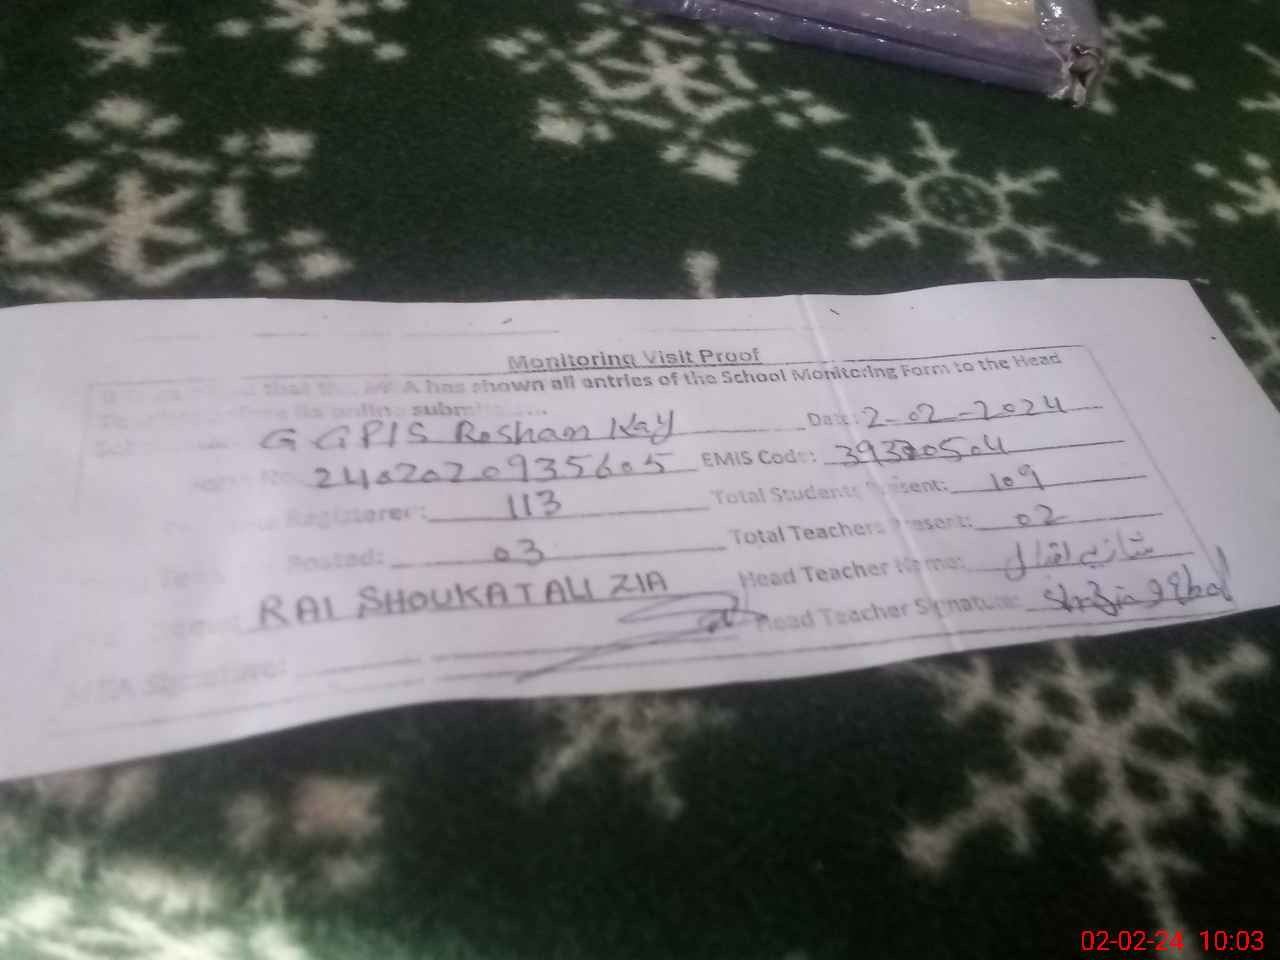 Monitoring Visit Proof
that the MEA has shown all entries of the School Monitoring Form to the Head
before its online submission.
GGPIS Roshan Kay Date: 2-02-2024
2402020935605 EMIS Code: 39320504
Registered: 113 Total Students Present: 109
Posted: 03 Total Teachers Present: 02
RAI SHOUKAT ALI ZIA Head Teacher Name: شازیہ اقبال
MEA Signature: Head Teacher Signature: Shazia Iqbal
02-02-24 10:03